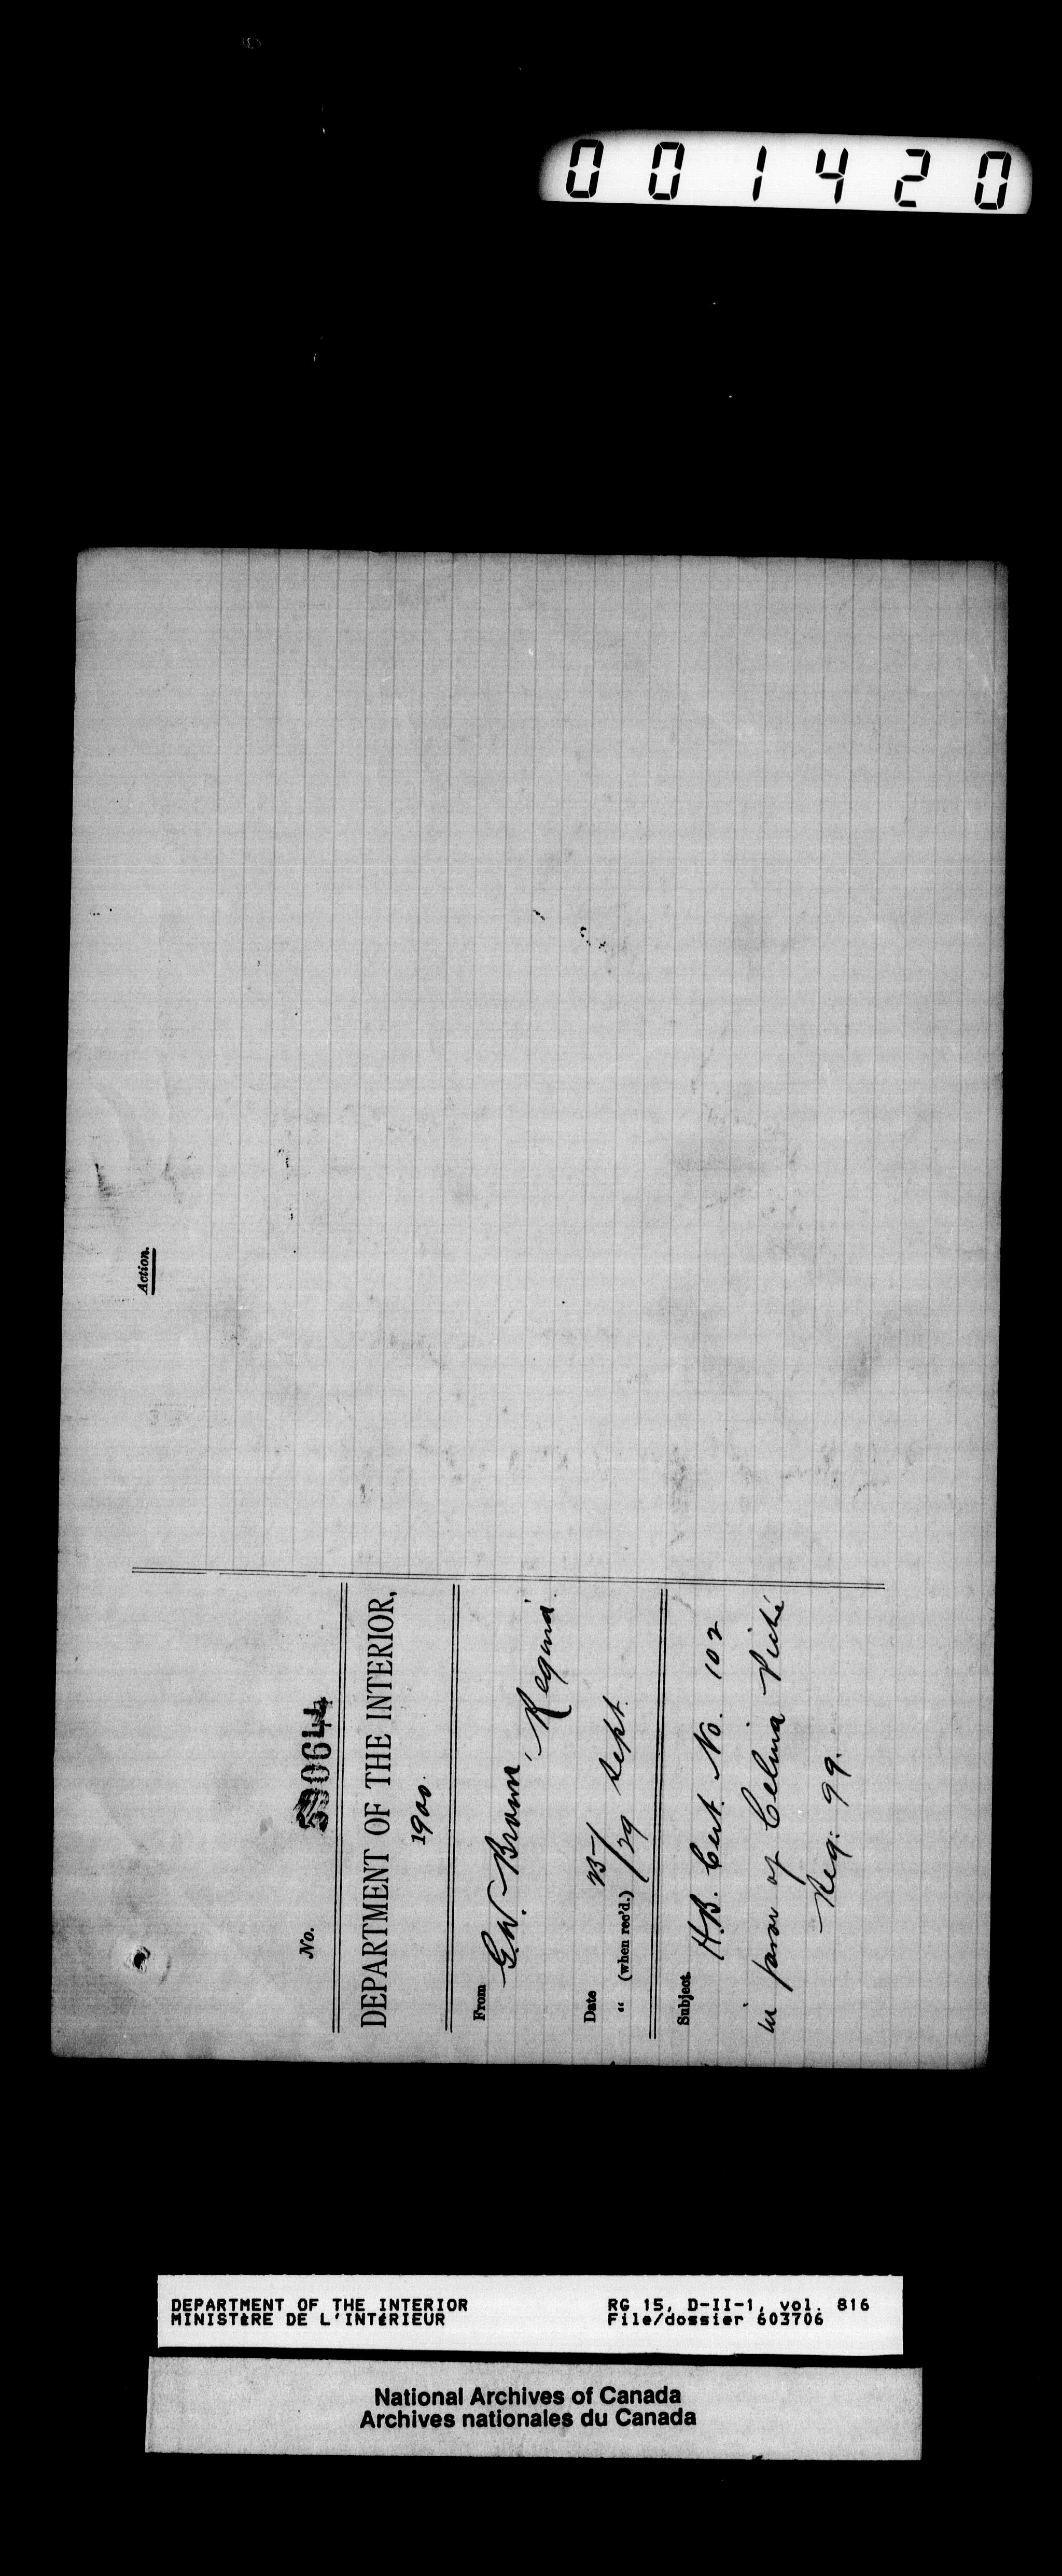 001420
Action.
No. 590644
DEPARTMENT OF THE INTERIOR,
1900.
From G.W. Brown, Regina.
Date 25
" (when rec'd.) 29 Sept.
Subject. H.B. Cert. No. 102
in favor of Celina Piché
Reg: 99.
DEPARTMENT OF THE INTERIOR
MINISTÈRE DE L'INTÉRIEUR
RG 15, D-II-1, vol. 816
File/dossier 603706
National Archives of Canada
Archives nationales du Canada